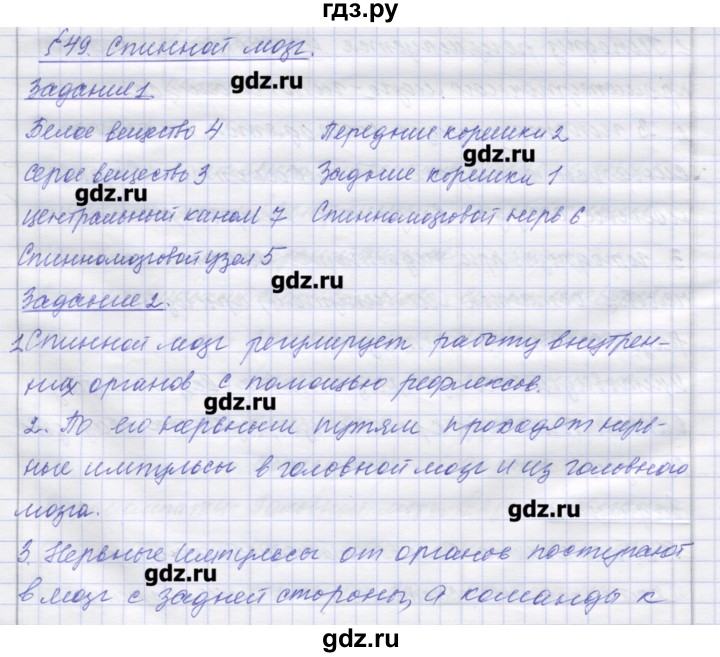 гдз.ру
§49. Спинной мозг.
Задание 1
gdz.ru
Белое вещество 4 Передние корешки 2
gdz.ru
Серое вещество 3 Задние корешки 1
gdz.ru
Центральный канал 7 Спинномозговой нерв 6
Спинномозговой узел 5
gdz.ru
Задание 2.
1. Спинной мозг регулирует работу внутрен-
них органов с помощью рефлексов.
gdz.ru
2. По его нервным путям проходят нерв-
ные импульсы в головной мозг и из головного
мозга.
gdz.ru
3. Нервные импульсы от органов поступают
gdz.ru
в мозг с задней стороны, а команды к
gdz.ru